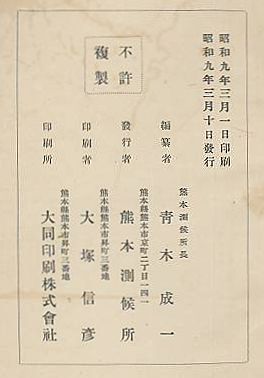 昭和九年三月一日印刷
昭和九年三月十日發行
不許
複製
熊本測候所長
編纂者 青木成一
熊本縣熊本市京町二丁目一四一
發行者 熊本測候所
熊本縣熊本市昇町三番地
印刷者 大塚信彥
熊本縣熊本市昇町三番地
印刷所 大同印刷株式會社